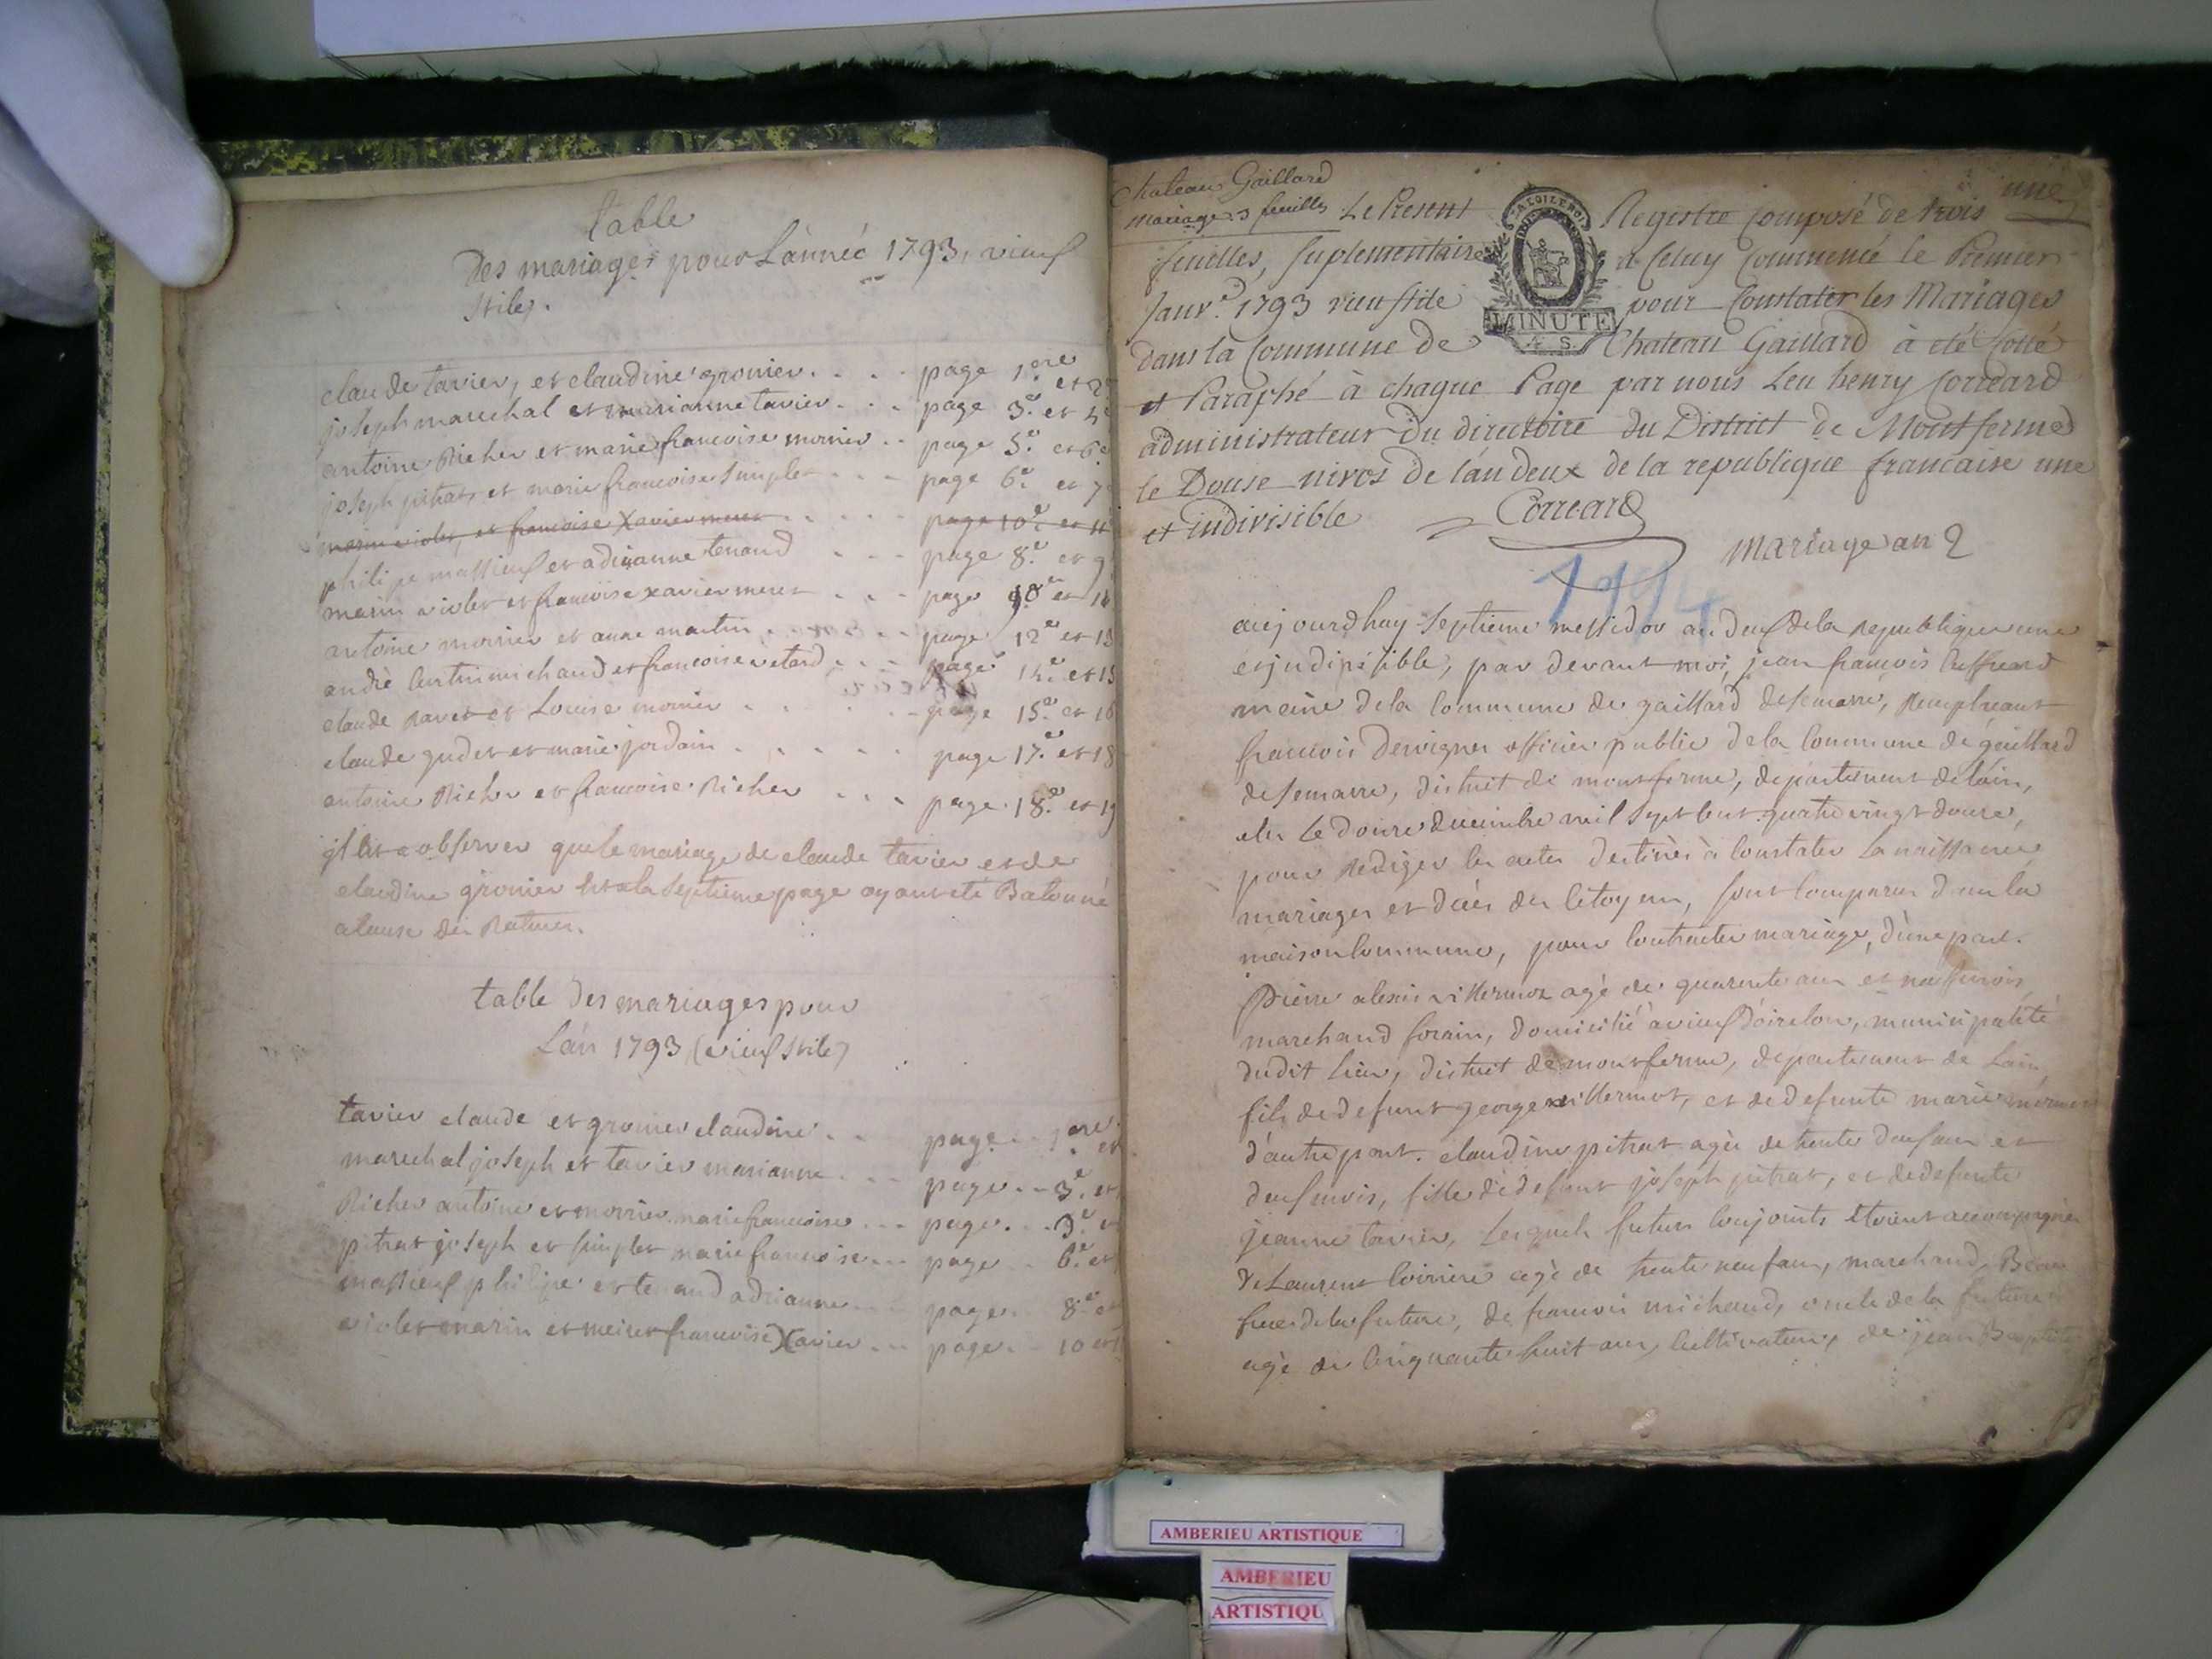 table
Des mariages pour L'année 1793, vieux
stile.
claude tavier, et claudine gronier . . . . page 1.ere et 2
joseph marechal et marianne tavier . . . page 3.e et 4e
antoine Richer et marie francoise monier . . page 5.e et 6e
joseph pitrat et marie francoise simplet . . . page 6.e et 7
marin violet, et francoise Xavier meret . . . . . page 10.e et 11
philipe massieux et adrianne tenand . . . page 8.e et 9
marin violet et francoise xavier meret . . . page 10.e et 11
antoine monier et anne martin . . . . . page 12.e et 13
andré michaud et francoise . . . page 14.e et 15
claude Ravet et Louise monier . . . . . page 15.e et 16
claude gudet et marie jordain . . . . . page 17.e et 18
antoine Richer et francoise Richer . . . page 18.e et 19
il est a observer que le mariage de claude tavier et de
claudine gronier est a la septieme page ayant eté Batonné
a cause des Ratures.
table Des mariages pour
L'an 1793 (vieux stile)
tavier claude et gronier claudine . . page . . 1.ere et
marechal joseph et tavier marianne . . . page . . 3.e et
Richer antoine et monier marie francoise . . . page . . . 5.e et
pitrat joseph et simplet marie francoise . . . page . . 6.e et
massieux philipe et tenand adrianne . . . page . . 8.e et
violet marin et meret francoise Xavier . . . page . . 10 et 11
Chateau Gaillard
mariages 3 feuilles
une
Le Present Registre Composé de trois
feuilles, suplementaire à Celuy Commencé le Premier
Janv.er 1793 vieu stile pour Constater les Mariages
dans la Commune de Chateau Gaillard à été Cotté
et Paraphé à chaque Page par nous Leu henry Correard
administrateur du directoire du District de Montferme
le Douse nivos de l'an deux de la republique francaise une
et indivisible Correard
LA LOI LE ROI
MINUTE
4 S.
mariage an 2
1794
aujourdhuy Septieme messidor an deux de la Republique une
et indivisible, par devant moi, jean francois
maire de la Commune de gaillard desemarre, Remplacant
francois Dervignes officier public de la Commune de gaillard
desemarre, district de montferme, departement de l'ain,
elu Le douze decembre mil sept cent quatre vingt douze,
pour Rediger les actes destinés à Constater la naissance
mariages et décès des Citoyens, sont Comparus dans la
maison Commune, pour Contracter mariage, d'une part.
pierre alexis villermoz agé de quarente ans et neuf mois
marchand forain, domicilié a vieux d'oirelou, municipalité
dudit lieu, district de montferme, departement de Lain,
fils de defunt george villermot, et de defunte marie mermet
d'autre part. claudine pitrat agée de trente deux ans et
deux mois, fille de defunt joseph pitrat, et de defunte
jeanne tavier, Lesquels futurs Conjoints étoient accompagnés
de Laurent Coirier agé de trente neuf ans, marchand, Beau
frere de la future, de francois michaud, oncle de la future
agé de Cinquante huit ans, Cultivateur, de jean Baptiste
AMBERIEU ARTISTIQUE
AMBERIEU
ARTISTIQU